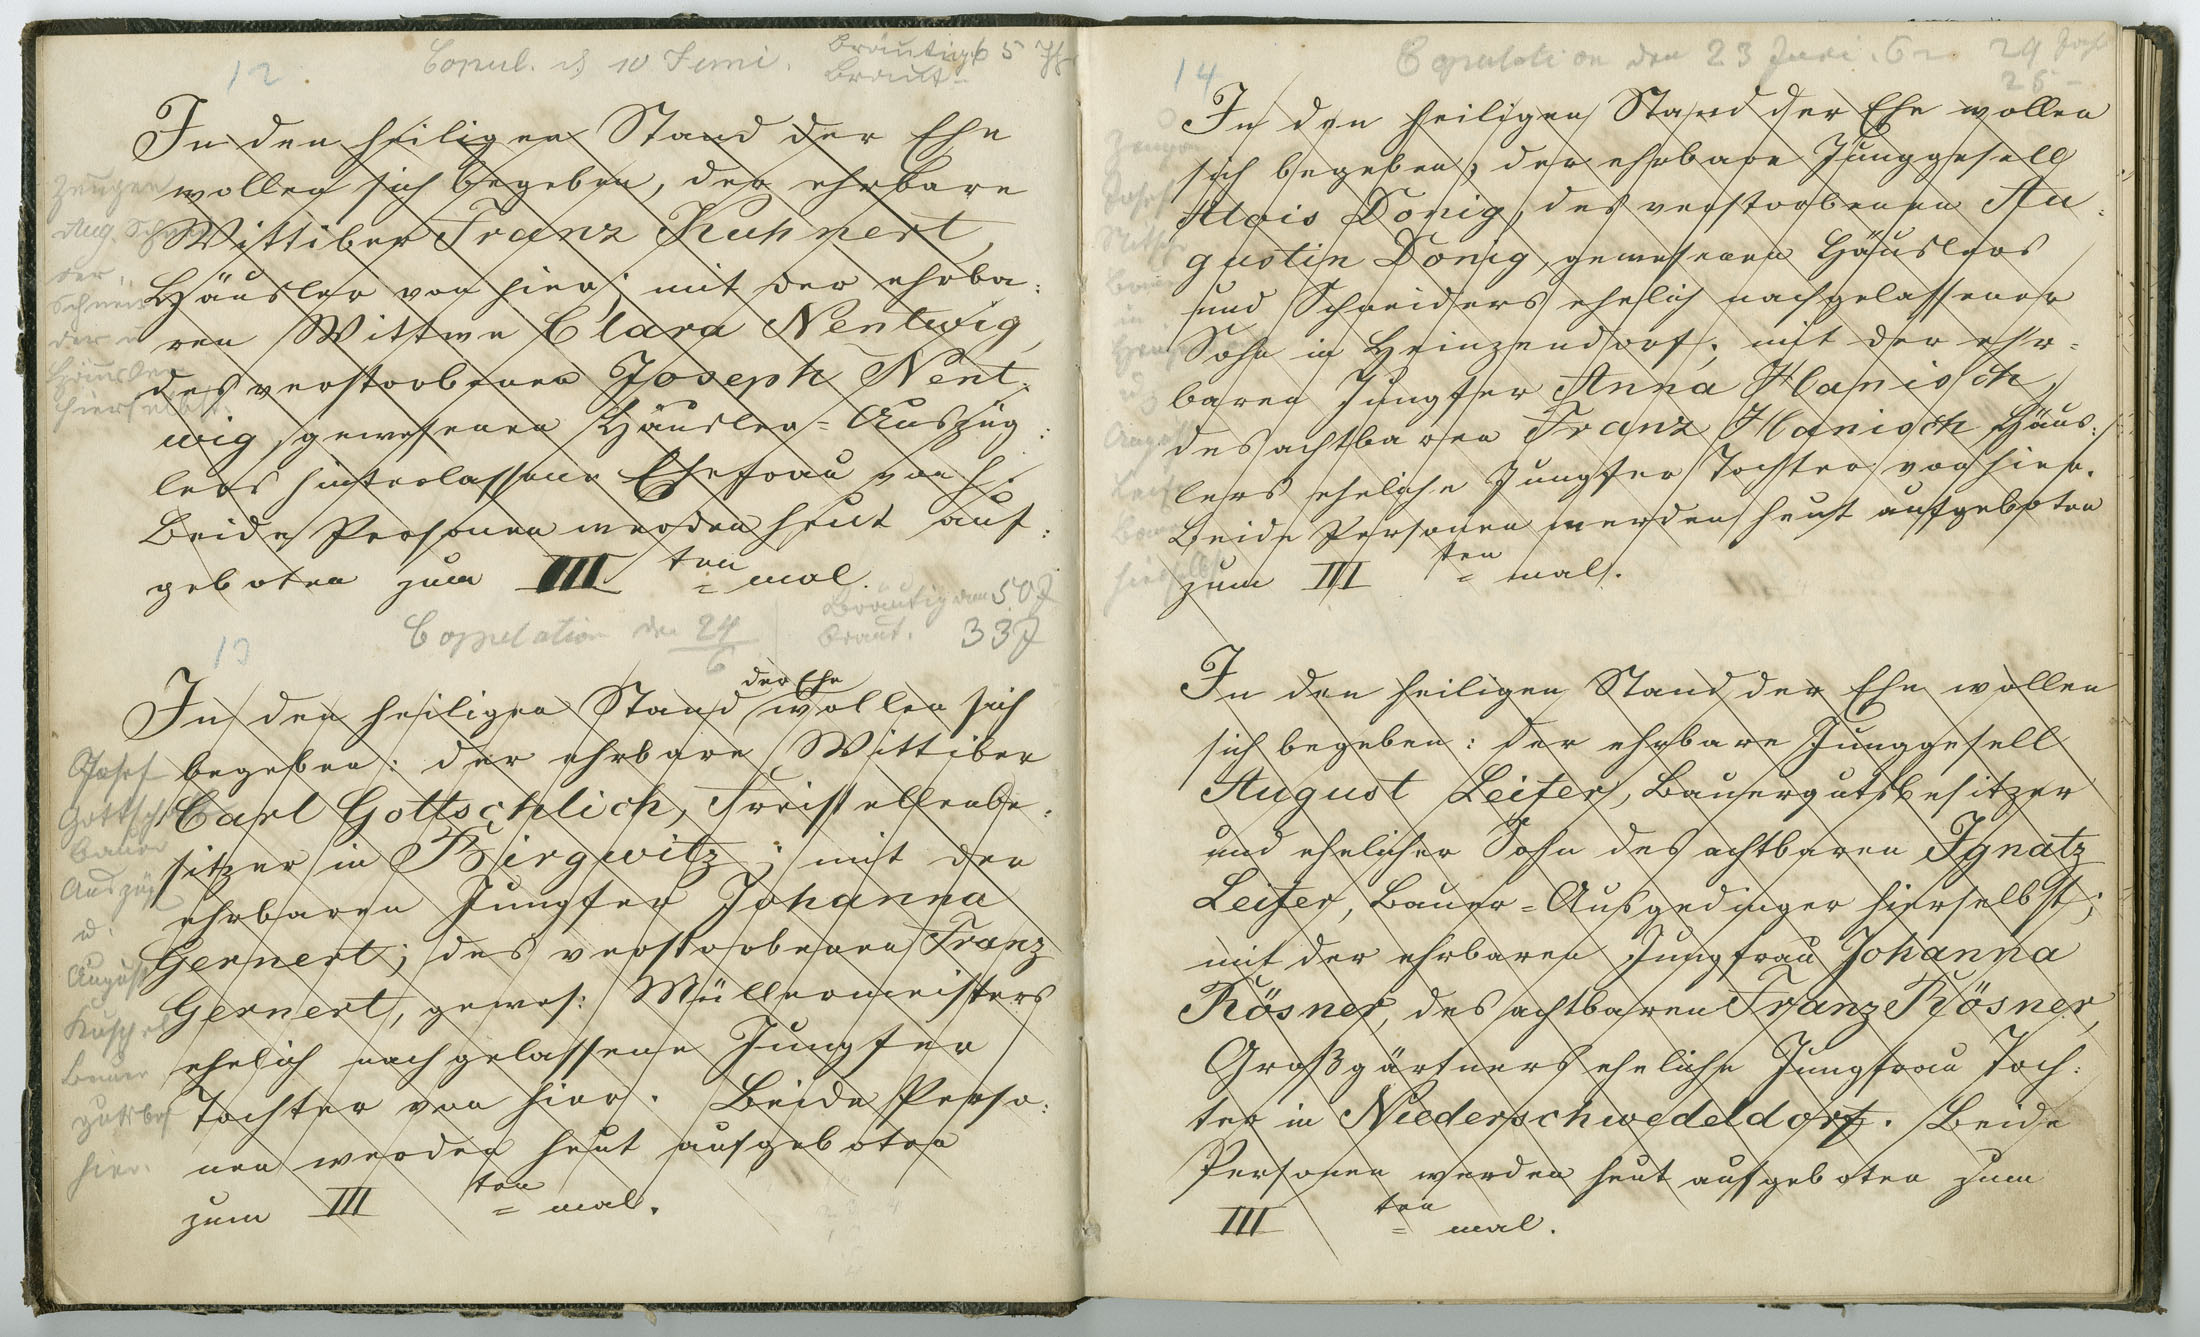 12.
Copul. d 10 Juni.
Bräutig 65 J
Braut –
In den heiligen Stand der Ehe
wollen sich begeben, der ehrbare
Wittiber Franz Kuhnert,
Häusler von hier; mit der ehrba:
ren Wittwe Clara Nentwig,
des verstorbenen Joseph Nent:
wig, gewesenen Häusler-Auszüg:
lers hinterlassene Ehefrau von h.
Beide Personen werden heut auf:
geboten zum III ten = mal.
Zeugen
Aug. Schnei
der,
Schnei
der u
Häusler
hierselbst.
13
Copulation den 24/6
Bräutigam 50 J
Braut. 33 J
In den heiligen Stand der Ehe wollen sich
begeben: der ehrbare Wittiber
Carl Gottschlich, Freistellenbe:
sitzer in Birgwitz; mit der
ehrbaren Jungfer Johanna
Gernert; des verstorbenen Franz
Gernert, gewes: Müllermeisters
ehelich nachgelassene Jungfer
Tochter von hier. Beide Perso:
nen werden heut aufgeboten
zum III ten = mal.
Josef
Gottsch
Bauer
Auszüg
u.
August
Kuschel
Bauer
gutsbes
hier.
14
Copulation den 23 Juni. 62
24 Jahr
25 –
In den heiligen Stand der Ehe wollen
sich begeben; der ehrbare Junggesell
Alois Donig, des verstorbenen Au:
gustin Donig, gewesenen Häuslers
und Schneiders ehelich nachgelassener
Sohn in Heinzendorf; mit der ehr-
baren Jungfer Anna Hanisch,
des achtbaren Franz Hanisch Häus:
lers eheliche Jungfer Tochter von hier.
Beide Personen werden heut aufgeboten
zum III ten = mal.
Zeugen
Josef
August
hierselbst
In den heiligen Stand der Ehe wollen
sich begeben: der ehrbare Junggesell
August Leifer, Bauergutsbesitzer
und ehelicher Sohn des achtbaren Ignatz
Leifer, Bauer-Ausgedinger hierselbst;
mit der ehrbaren Jungfrau Johanna
Rösner, des achtbaren Franz Rösner,
Großgärtners eheliche Jungfrau Toch:
ter in Niederschwedeldorf. Beide
Personen werden heut aufgeboten zum
III ten = mal.